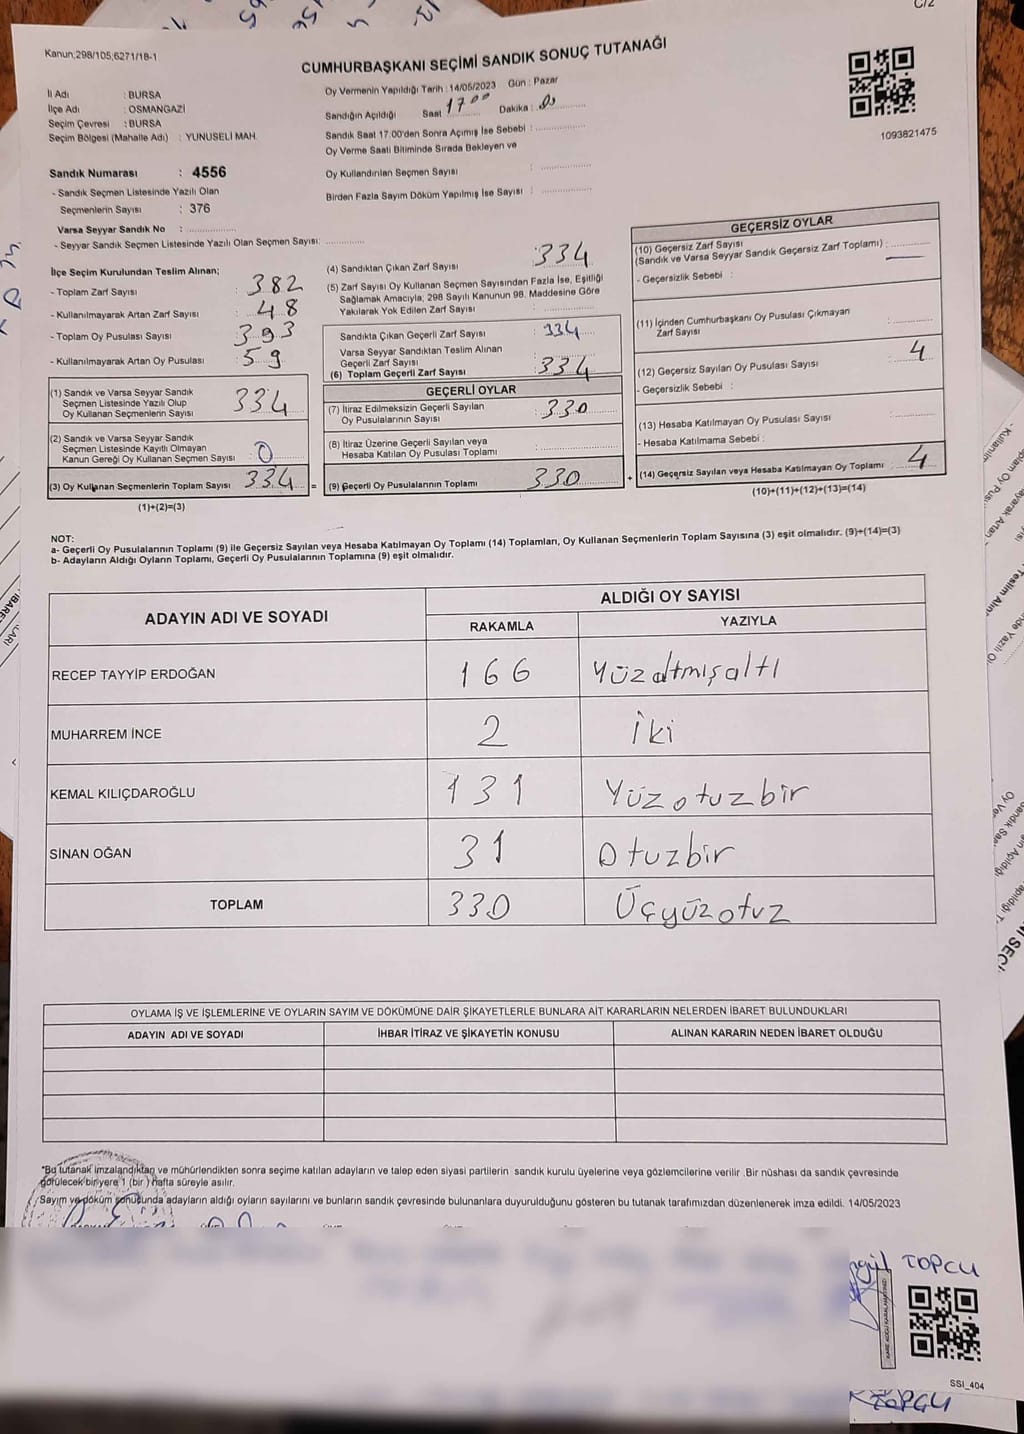 C/2
Kanun;298/105;6271/18-1
CUMHURBAŞKANI SEÇİMİ SANDIK SONUÇ TUTANAĞI
1093821475
İl Adı : BURSA
İlçe Adı : OSMANGAZİ
Seçim Çevresi : BURSA
Seçim Bölgesi (Mahalle Adı) : YUNUSELİ MAH.
Oy Vermenin Yapıldığı Tarih : 14/05/2023 Gün : Pazar
Sandığın Açıldığı Saat 17 00 Dakika : 0
Sandık Saat 17:00'den Sonra Açımış İse Sebebi :
Oy Verme Saati Bitiminde Sırada Bekleyen ve
Oy Kullandırılan Seçmen Sayısı :
Birden Fazla Sayım Döküm Yapılmış İse Sayısı :
Sandık Numarası : 4556
- Sandık Seçmen Listesinde Yazılı Olan
Seçmenlerin Sayısı : 376
Varsa Seyyar Sandık No :
- Seyyar Sandık Seçmen Listesinde Yazılı Olan Seçmen Sayısı:
İlçe Seçim Kurulundan Teslim Alınan;
- Toplam Zarf Sayısı : 382
- Kullanılmayarak Artan Zarf Sayısı : 48
- Toplam Oy Pusulası Sayısı : 393
- Kullanılmayarak Artan Oy Pusulası : 59
(1) Sandık ve Varsa Seyyar Sandık
Seçmen Listesinde Yazılı Olup
Oy Kullanan Seçmenlerin Sayısı 334
(2) Sandık ve Varsa Seyyar Sandık
Seçmen Listesinde Kayıtlı Olmayan
Kanun Gereği Oy Kullanan Seçmen Sayısı : 0
(3) Oy Kullanan Seçmenlerin Toplam Sayısı 334 =
(1)+(2)=(3)
(4) Sandıktan Çıkan Zarf Sayısı : 334
(5) Zarf Sayısı Oy Kullanan Seçmen Sayısından Fazla İse, Eşitliği
Sağlamak Amacıyla; 298 Sayılı Kanunun 98. Maddesine Göre
Yakılarak Yok Edilen Zarf Sayısı :
Sandıkta Çıkan Geçerli Zarf Sayısı : 334
Varsa Seyyar Sandıktan Teslim Alınan
Geçerli Zarf Sayısı :
(6) Toplam Geçerli Zarf Sayısı : 334
GEÇERLİ OYLAR
(7) İtiraz Edilmeksizin Geçerli Sayılan
Oy Pusulalarının Sayısı : 330
(8) İtiraz Üzerine Geçerli Sayılan veya
Hesaba Katılan Oy Pusulası Toplamı :
(9) Geçerli Oy Pusulalarının Toplamı : 330 +
GEÇERSİZ OYLAR
(10) Geçersiz Zarf Sayısı
(Sandık ve Varsa Seyyar Sandık Geçersiz Zarf Toplamı) :
- Geçersizlik Sebebi :
(11) İçinden Cumhurbaşkanı Oy Pusulası Çıkmayan
Zarf Sayısı :
(12) Geçersiz Sayılan Oy Pusulası Sayısı : 4
- Geçersizlik Sebebi :
(13) Hesaba Katılmayan Oy Pusulası Sayısı :
- Hesaba Katılmama Sebebi :
(14) Geçersiz Sayılan veya Hesaba Katılmayan Oy Toplamı : 4
(10)+(11)+(12)+(13)=(14)
NOT:
a- Geçerli Oy Pusulalarının Toplamı (9) ile Geçersiz Sayılan veya Hesaba Katılmayan Oy Toplamı (14) Toplamları, Oy Kullanan Seçmenlerin Toplam Sayısına (3) eşit olmalıdır. (9)+(14)=(3)
b- Adayların Aldığı Oyların Toplamı, Geçerli Oy Pusulalarının Toplamına (9) eşit olmalıdır.
ADAYIN ADI VE SOYADI ALDIĞI OY SAYISI
RAKAMLA YAZIYLA
RECEP TAYYİP ERDOĞAN 166 Yüzaltmışaltı
MUHARREM İNCE 2 İki
KEMAL KILIÇDAROĞLU 131 Yüzotuzbir
SİNAN OĞAN 31 Otuzbir
TOPLAM 330 Üçyüzotuz
OYLAMA İŞ VE İŞLEMLERİNE VE OYLARIN SAYIM VE DÖKÜMÜNE DAİR ŞİKAYETLERLE BUNLARA AİT KARARLARIN NELERDEN İBARET BULUNDUKLARI
ADAYIN ADI VE SOYADI İHBAR İTİRAZ VE ŞİKAYETİN KONUSU ALINAN KARARIN NEDEN İBARET OLDUĞU
*Bu tutanak imzalandıktan ve mühürlendikten sonra seçime katılan adayların ve talep eden siyasi partilerin sandık kurulu üyelerine veya gözlemcilerine verilir .Bir nüshası da sandık çevresinde
görülecek bir yere 1 (bir ) hafta süreyle asılır.
Sayım ve döküm sonucunda adayların aldığı oyların sayılarını ve bunların sandık çevresinde bulunanlara duyurulduğunu gösteren bu tutanak tarafımızdan düzenlenerek imza edildi. 14/05/2023
TOPCU
SSI_404
TOPCU